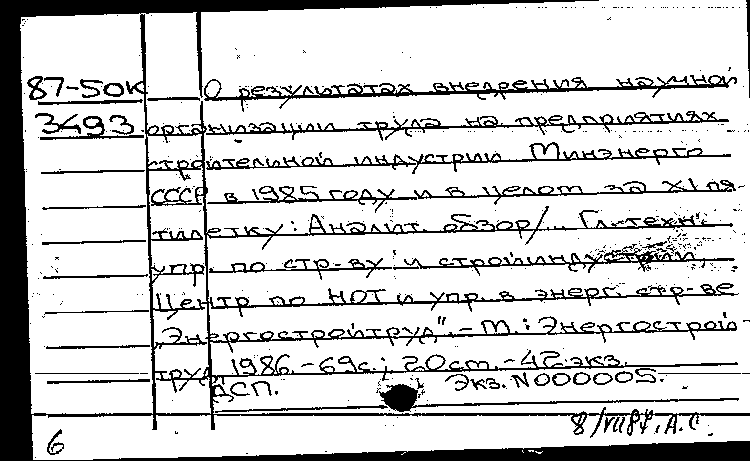 87-50К О результатах внедрения научной
3493 организации труда на предприятиях
строительной индустрии Минэнерго
СССР в 1985 году и в целом за XI пя-
тилетку: Аналит. обзор/... Гл. техн.
упр. по стр-ву и стройиндустрии,
Центр по НОТ и упр. в энерг. стр-ве
„Энергостройтруд". - М.: Энергострой-
труд, 1986. - 69с.; 20 см. - 42 экз.
ДСП. Экз. N000005.
8/VII87. А.С.
6